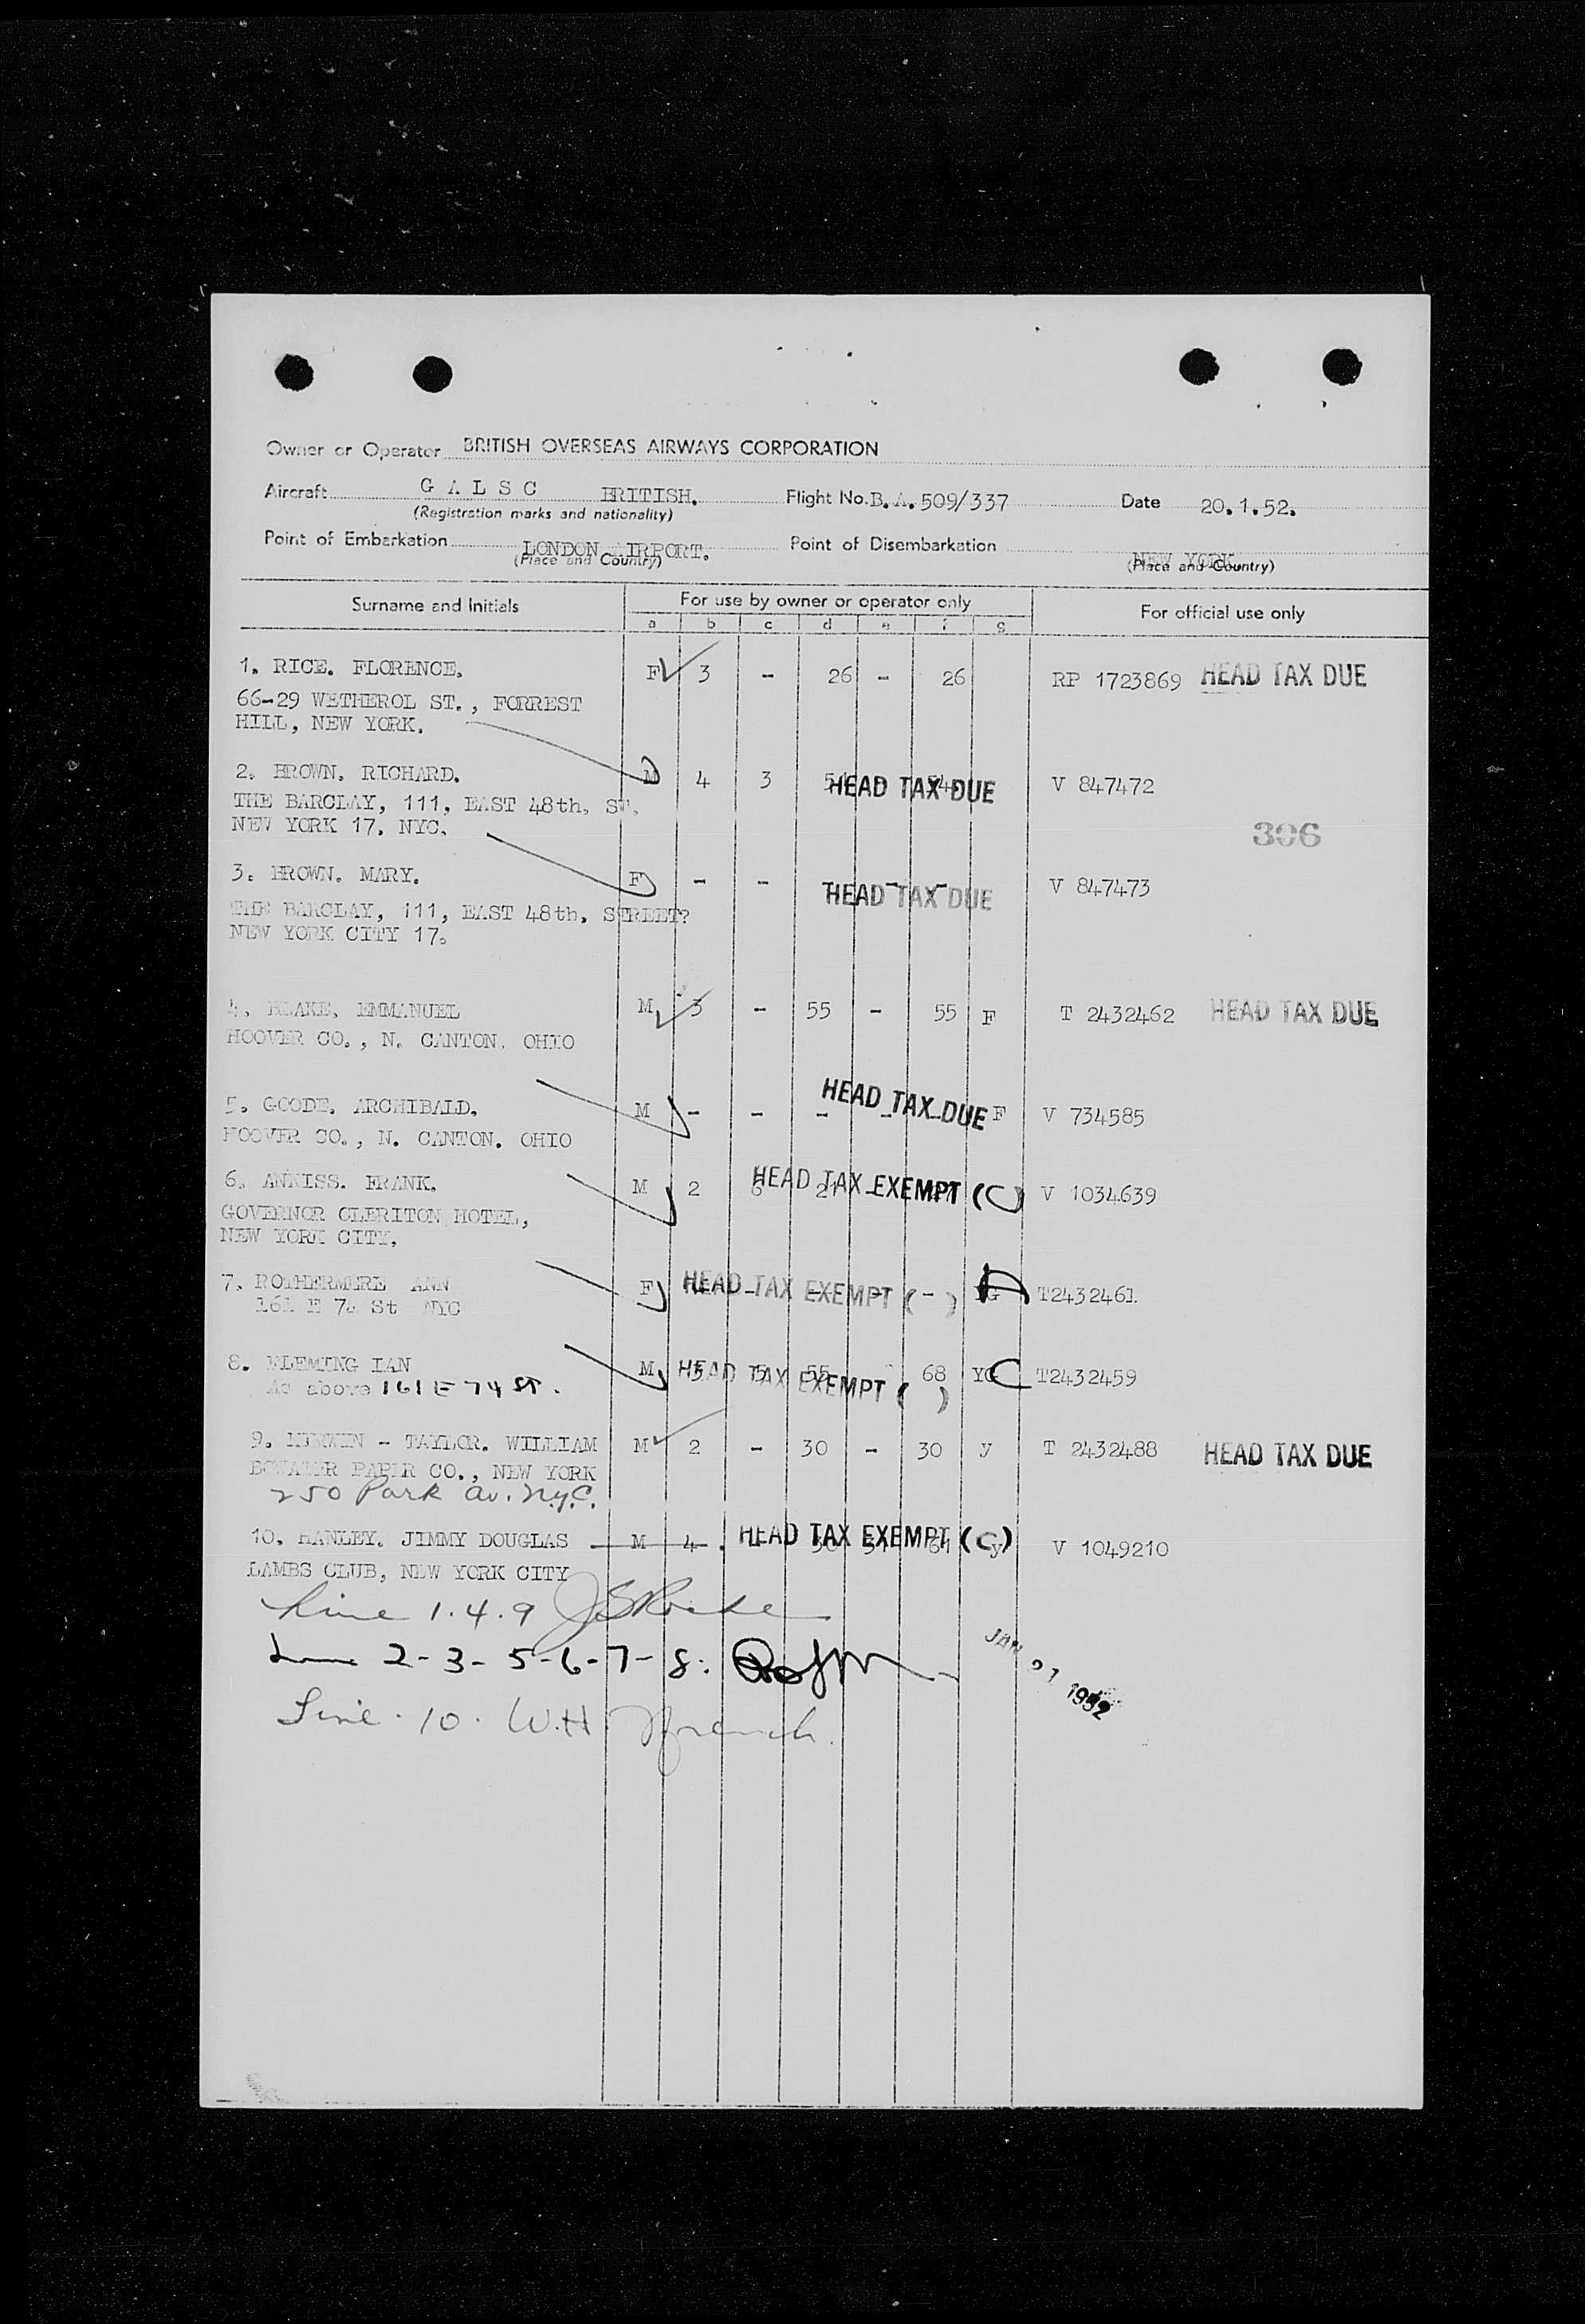 Owner or Operator BRITISH OVERSEAS AIRWAYS CORPORATION
Aircraft G A L S C BRITISH. Flight No. B.A. 509/337 Date 20.1.52.
(Registration marks and nationality)
Point of Embarkation LONDON AIRPORT. Point of Disembarkation NEW YORK.
(Place and Country) (Place and Country)
Surname and Initials For use by owner or operator only For official use only
a b c d e f g
1. RICE. FLORENCE. F 3 - 26 - 26 RP 1723869 HEAD TAX DUE
66-29 WETHEROL ST., FORREST
HILL, NEW YORK.
2. BROWN. RICHARD. M 4 3 HEAD TAX DUE V 847472
THE BARCLAY, 111, EAST 48th, ST,
NEW YORK 17. NYC.
306
3. BROWN. MARY. F - - - - - HEAD TAX DUE V 847473
THE BARCLAY, 111, EAST 48th, STREET?
NEW YORK CITY 17.
4. BLAKE, EMMANUEL M 3 - 55 - 55 F T 2432462 HEAD TAX DUE
HOOVER CO., N. CANTON. OHIO
5. GOODE. ARCHIBALD. M - - - - - HEAD TAX DUE F V 734585
HOOVER CO., N. CANTON. OHIO
6. ANKISS. FRANK. M 2 6 21 - HEAD TAX EXEMPT (C) V 1034639
GOVERNOR CLERITON HOTEL,
NEW YORK CITY.
7. ROTHERMERE ANN F HEAD TAX EXEMPT ( - ) T2432461
161 E 74 St NYC
8. FLEMING IAN M 5 5 55 HEAD TAX EXEMPT ( ) 68 YG C T2432459
As above 161 E 74 ST.
9. KIRWIN - TAYLOR. WILLIAM M 2 - 30 - 30 y T 2432488 HEAD TAX DUE
BOWATER PAPER CO., NEW YORK
250 Park Av. N.Y.C.
10. HANLEY. JIMMY DOUGLAS M 4 HEAD TAX EXEMPT (C) y V 1049210
LAMBS CLUB, NEW YORK CITY
Line 1.4.9
Line 2-3-5-6-7-8:
JAN 21 1952
Line 10. W.H. French.